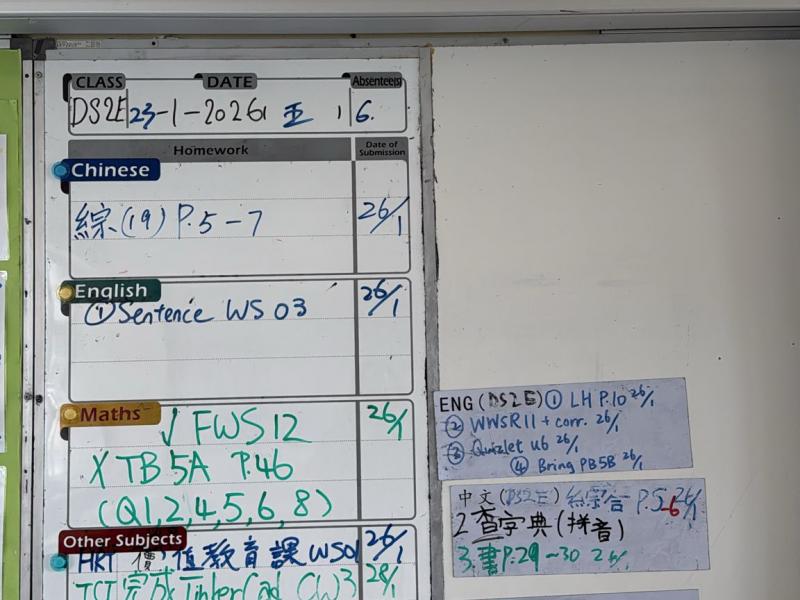 CLASS DATE Absentee(s)
DS2E 23-1-2026 五 6.
Homework Date of Submission
Chinese
綜(19) P.5-7 26/1
English
① Sentence WS 03 26/1
Maths
√ FWS12 26/1
X TB 5A P.46
(Q1,2,4,5,6,8)
Other Subjects
價值教育課 WS01 26/1
完成 TinkerCad CW3 28/1
ENG (DS2E) ① LH P.10 26/1
② WWSR11 + corr. 26/1
③ Quizlet u6 26/1
④ Bring PB5B 26/1
中文 (DS2E) 綜合 P.5-6 26/1
2 查字典(拼音)
3. 書P.29~30